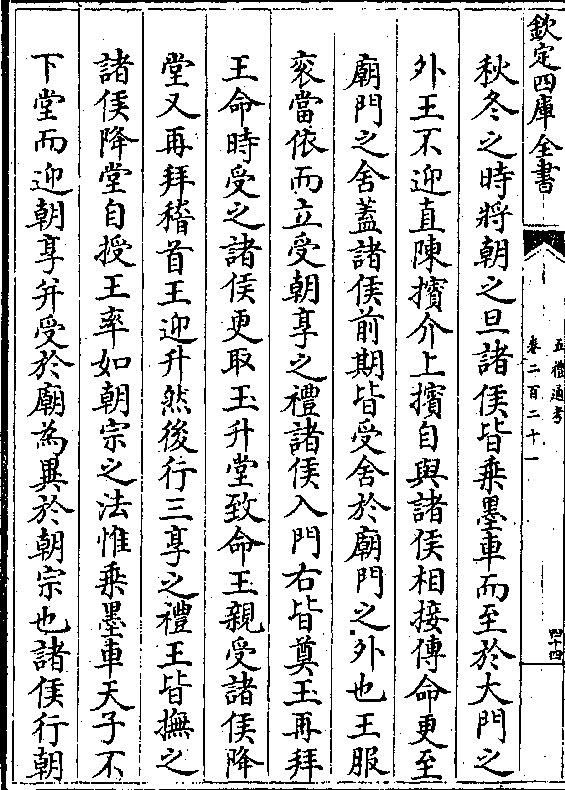 欽定四庫全書
五禮通考
卷二百二十一
四十四
秋冬之時將朝之旦諸侯皆乗墨車而至於大門之
外王不迎直陳擯介上擯自與諸侯相接傳命更至
廟門之舍蓋諸侯前期皆受舍於廟門之外也王服
衮當依而立受朝享之禮諸侯入門右皆奠玉再拜
王命時受之諸侯更取玉升堂致命王親受諸侯降
堂又再拜稽首王迎升然後行三享之禮王皆撫之
諸侯降堂自授王率如朝宗之法惟乗墨車天子不
下堂而迎朝享并受於廟為異於朝宗也諸侯行朝